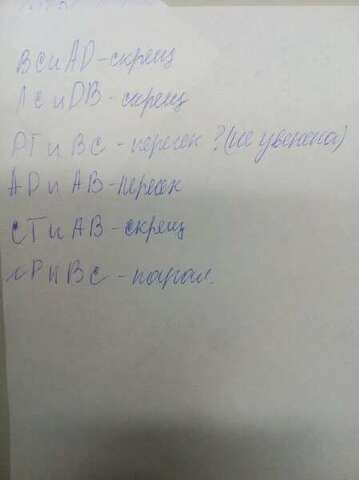 BC и AD - скрещ
AC и DB - скрещ
PT и BC - пересек ? (не уверена)
AD и AB - пересек
CT и AB - скрещ
MP и BC - парал.